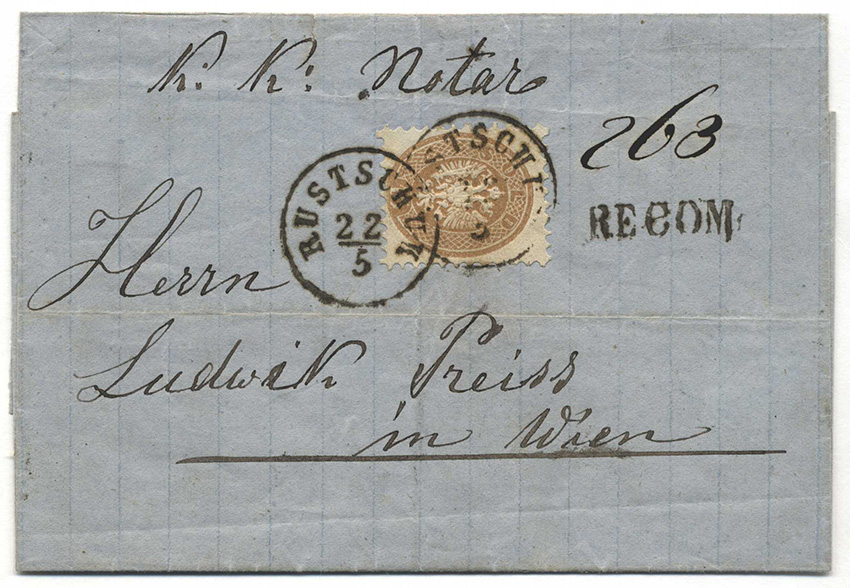 K. K: Notar
263
RUSTSUK
22
5
RECOM:
Herrn
Ludwik Preiss
in Wien